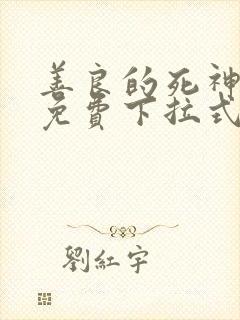 善良的死神
免費下拉式
劉紅宇